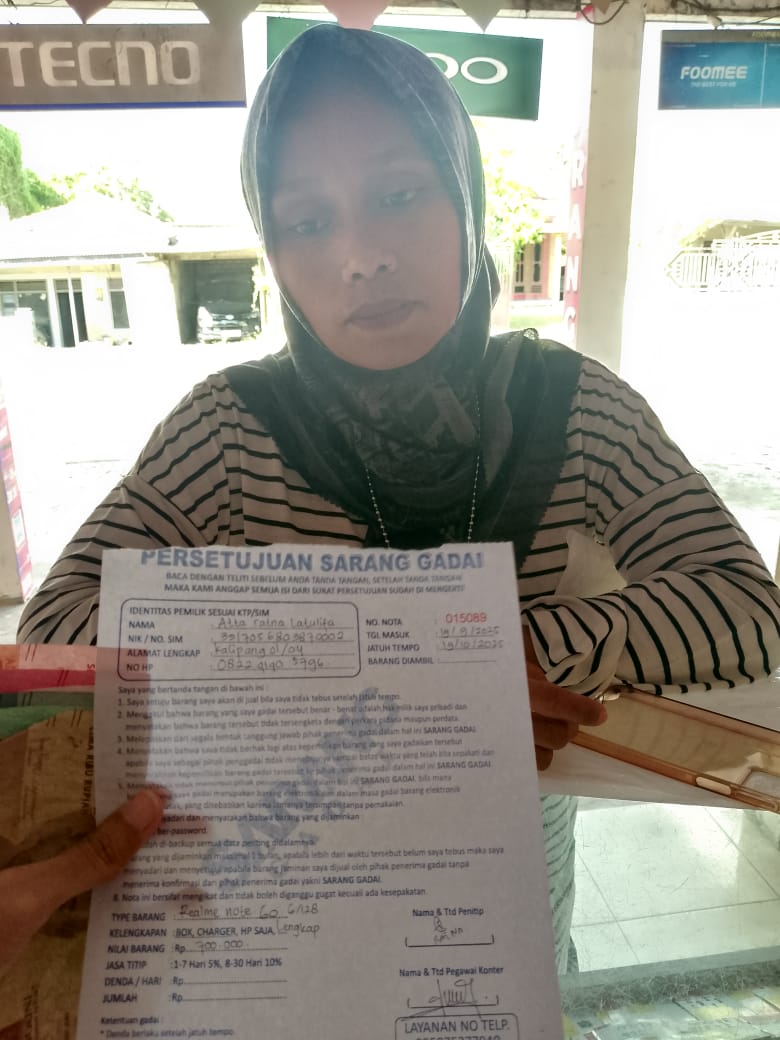 TECNO
FOOMEE
THE BEST FOR ME
PERSETUJUAN SARANG GADAI
BACA DENGAN TELITI SEBELUM ANDA TANDA TANGAN, SETELAH TANDA TANGAN
MAKA KAMI ANGGAP SEMUA ISI DARI SURAT PERSETUJUAN SUDAH DI MENGERTI
IDENTITAS PEMILIK SESUAI KTP/SIM
NAMA : Atta ratna Latulifa
NIK / NO. SIM :
ALAMAT LENGKAP : Kalipang 01/04
NO HP : 0822
NO. NOTA : 015089
TGL MASUK : 19/9/2025
JATUH TEMPO : 19/10/2025
BARANG DIAMBIL :
Saya yang bertanda tangan di bawah ini :
1. Saya setuju barang saya akan di jual bila saya tidak tebus setelah jatuh tempo.
2. Mengakui bahwa barang yang saya gadai tersebut benar - benar adalah hak milik saya pribadi dan
menyatakan bahwa barang tersebut tidak tersengketa dengan perkara pidana maupun perdata.
3. Melepaskan dari segala bentuk tanggung jawab pihak penerima gadai dalam hal ini SARANG GADAI.
4. Menyatakan bahwa saya tidak berhak lagi atas kepemilikan barang yang saya gadaikan tersebut
apabila saya sebagai pihak penggadai tidak menebus sampai batas waktu yang telah kita sepakati dan
kepemilikan barang gadai tersebut penerima gadai dalam hal ini SARANG GADAI.
5. pihak penerima gadai dalam hal ini SARANG GADAI, bila mana
saya gadai merupakan barang elektronik dalam masa gadai barang elektronik
yang disebabkan karena lamanya tersimpan tanpa pemakaian.
dan menyatakan bahwa barang yang dijaminkan
ber-password.
di backup semua data penting didalamnya.
barang yang dijaminkan maksimal 1 bulan, apabila lebih dari waktu tersebut belum saya tebus maka saya
menyadari dan menyetujui apabila barang jaminan saya dijual oleh pihak penerima gadai tanpa
menerima konfirmasi dari pihak penerima gadai yakni SARANG GADAI.
8. Nota ini bersifat mengikat dan tidak boleh diganggu gugat kecuali ada kesepakatan.
TYPE BARANG : Realme note 60 6/128
KELENGKAPAN : BOX, CHARGER, HP SAJA, Lengkap
NILAI BARANG : Rp. 700.000
JASA TITIP : 1-7 Hari 5%, 8-30 Hari 10%
DENDA / HARI : Rp.
JUMLAH : Rp.
Nama & Ttd Penitip
Nama & Ttd Pegawai Konter
Ketentuan gadai :
* Denda berlaku setelah jatuh tempo.
LAYANAN NO TELP.